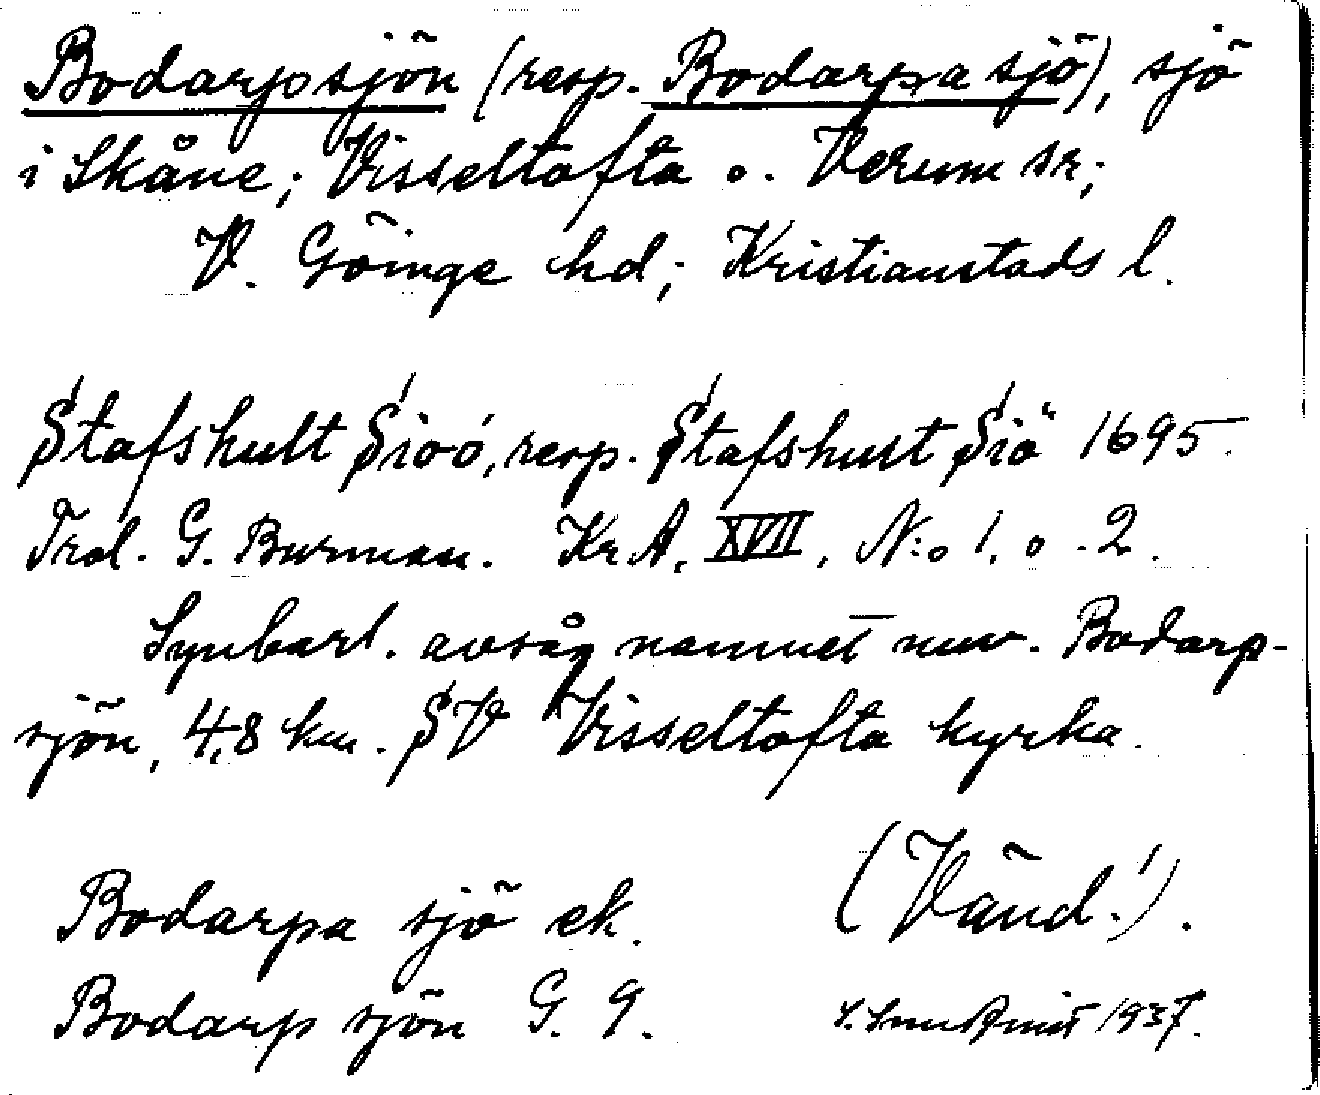 Bodarpsjön (resp. Bodarpa sjö), sjö
i Skåne; Visseltofta o. Verum sr;
V. Göinge hd; Kristianstads l.
Stafshult Sioó, resp. Stafshult Siö 1695.
Trol. G. Burman. Kr. A. XVII, N:o 1. o. 2.
Synbarl. avsåg namnet nuv. Bodarp-
sjön, 4,8 km. SV Visseltofta kyrka.
Bodarpa sjö ek. (Vänd!).
Bodarp sjön G. 9. 1937.